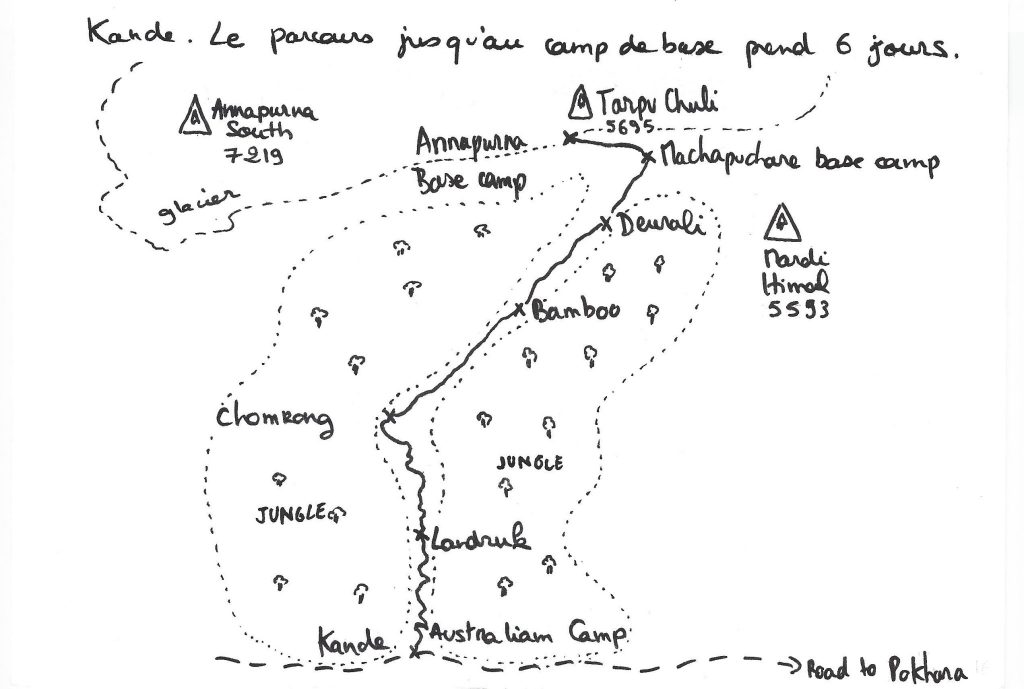 Kande. Le parcours jusqu'au camp de base prend 6 jours.
Annapurna
South
7219
Tarpu Chuli
5695
Annapurna
Base camp
Machapuchare base camp
glacier
Deurali
Mardi
Himal
5593
Bamboo
Chomrong
JUNGLE
JUNGLE
Landruk
Kande
Australiam Camp
Road to Pokhara